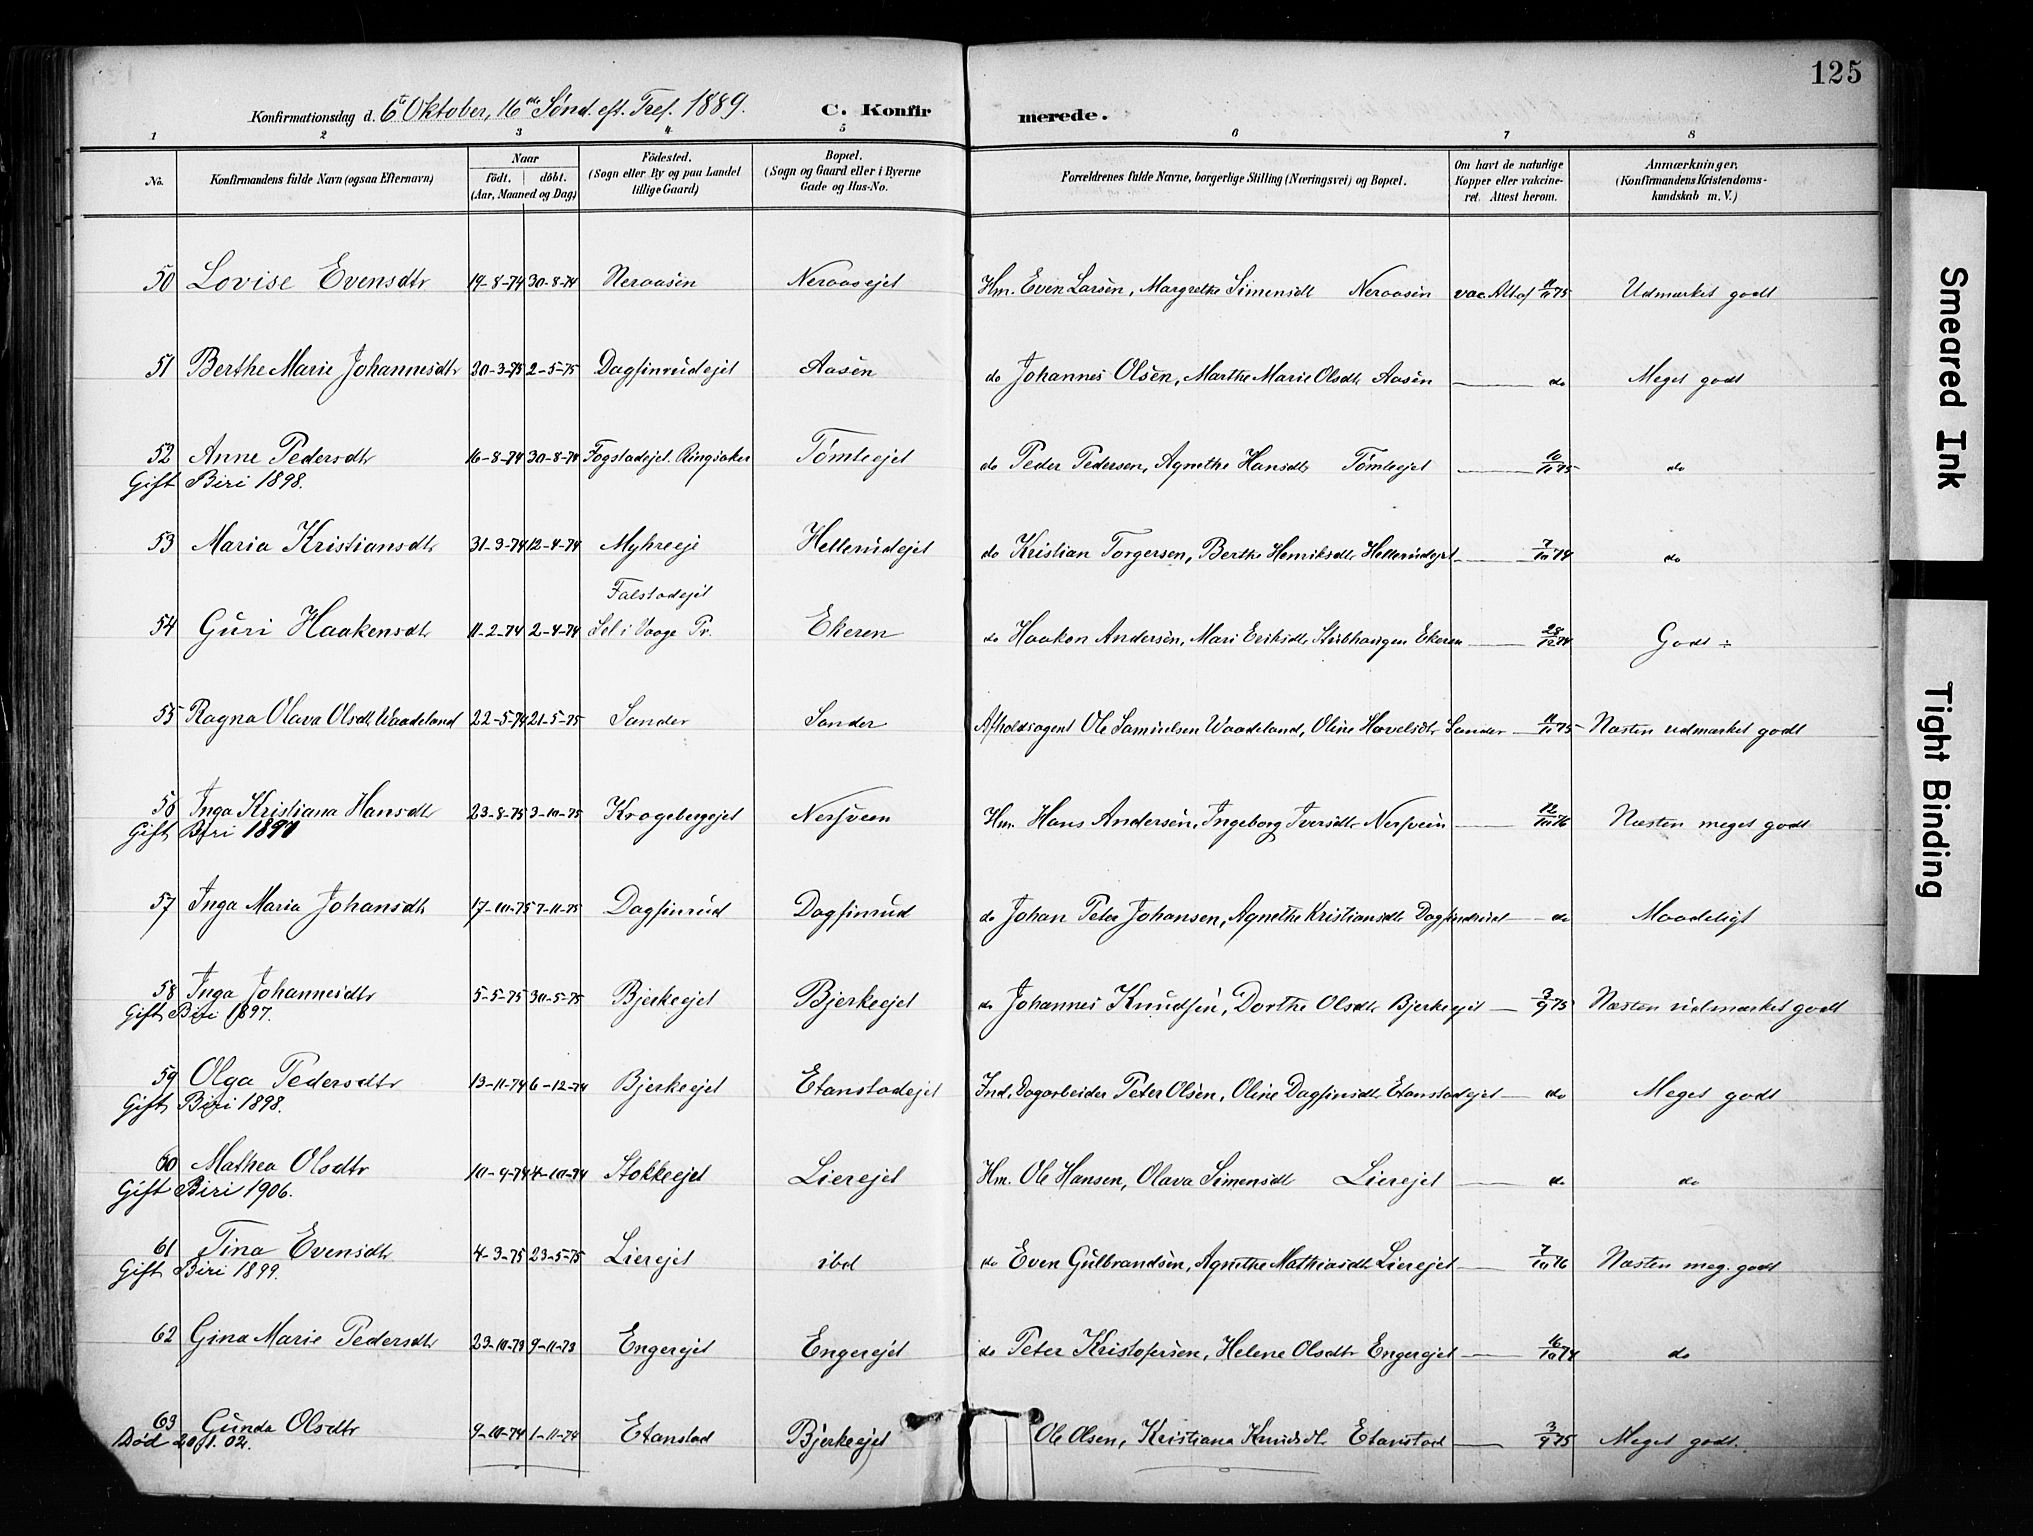 125
Konfirmationsdag d. 6t Oktober, 16de Sønd. eft. Tref. 1889. C. Konfir merede.
1 2 3 4 5 6 7 8
No. Konfirmandens fulde Navn (ogsaa Efternavn) Naar født. døbt. (Aar, Maaned og Dag) Födested. (Sogn eller By og paa Landet tillige Gaard) Bopæl. (Sogn og Gaard eller i Byerne Gade og Hus-No. Forældrenes fulde Navne, borgerlige Stilling (Næringsvei) og Bopæl. Om havt de naturlige Kopper eller vakcineret. Attest herom. Anmærkninger. (Konfirmandens Kristendomskundskab m. V.)
50 Lovise Evensdtr 19-8-74 30-8-74 Neraasen Neraasejet Hm. Even Larsen, Margrethe Simensdt Neraasen vac. Att af 11/11 75 Udmærket godt
51 Berthe Marie Johannesdtr 20-3-75 2-5-75 Dagfinrudejet Aasen do Johannes Olsen, Marthe Marie Olsdtr Aasen — do Meget godt
52 Anne Pedersdtr 16-8-74 30-8-74 Fogstadejet. Ringsaker Tømteejet do Peder Pedersen, Agnethe Hansdtr Tømteejet — do
Gift Biri 1898.
53 Maria Kristiansdtr 31-3-74 12-4-74 Myhreeje Hellerudejet do Kristian Torgersen, Berthe Henriksdtr Hellerudejet — 7/10 74 do
Falstadejet
54 Guri Haakensdtr 11-2-74 2-4-74 Sel i Vaage Pr. Ekeren do Haakon Andersen, Mari Eriksdtr Stubhaugen Ekeren — 28/12 74 Godt ÷
55 Ragna Olava Olsdtr Waadeland 22-5-74 21-5-75 Sander Sander Afholdsagent Ole Samuelsen Waadeland, Oline Hovelsdtr Sander — 11/11 75 Næsten udmærket godt
56 Inga Kristiana Hansdtr 23-8-75 3-10-75 Krogebergejet Nersveen Hm. Hans Andersen, Ingeborg Iversdtr Nersveen — 12/10 76 Næsten meget godt
Gift Biri 1897
57 Inga Maria Johansdtr 17-10-75 7-11-75 Dagfinrud Dagfinrud do Johan Peter Johansen, Agnethe Kristiansdtr Dagfindrud — do Maadeligt
58 Inga Johannesdtr 5-5-75 30-5-75 Bjerkeejet Bjerkeejet do Johannes Knudsen, Dorthe Olsdtr Bjerkeejet — 3/9 75 Næsten udmærket godt
Gift Biri 1897.
59 Olga Pedersdtr 13-11-74 6-12-74 Bjerkeejet Etanstadejet Ind. Dagarbeider Peter Olsen, Oline Dagfinsdtr Etanstadejet — do Meget godt
Gift Biri 1898.
60 Mathea Olsdtr 10-9-74 4-10-74 Stokkeejet Lierejet Hm. Ole Hansen, Olava Simensdt Lierejet — do do
Gift Biri 1906.
61 Tina Evensdtr 4-3-75 23-5-75 Lierejet ibd do Even Gulbrandsen, Agnethe Mathiasdt Lierejet — 7/10 76 Næsten meg. godt
Gift Biri 1899.
62 Gina Marie Pedersdtr 23-10-73 9-11-73 Engerejet Engerejet do Peter Kristofersen, Helene Olsdtr Engerejet — 16/10 74 do
63 Gunda Olsdtr 9-10-74 1-11-74 Etanstad Bjerkeejet Ole Olsen, Kristiana Knudsdtr Etanstad — 3/9 75 Meget godt.
Død 20/1.02.
Smeared Ink
Tight Binding